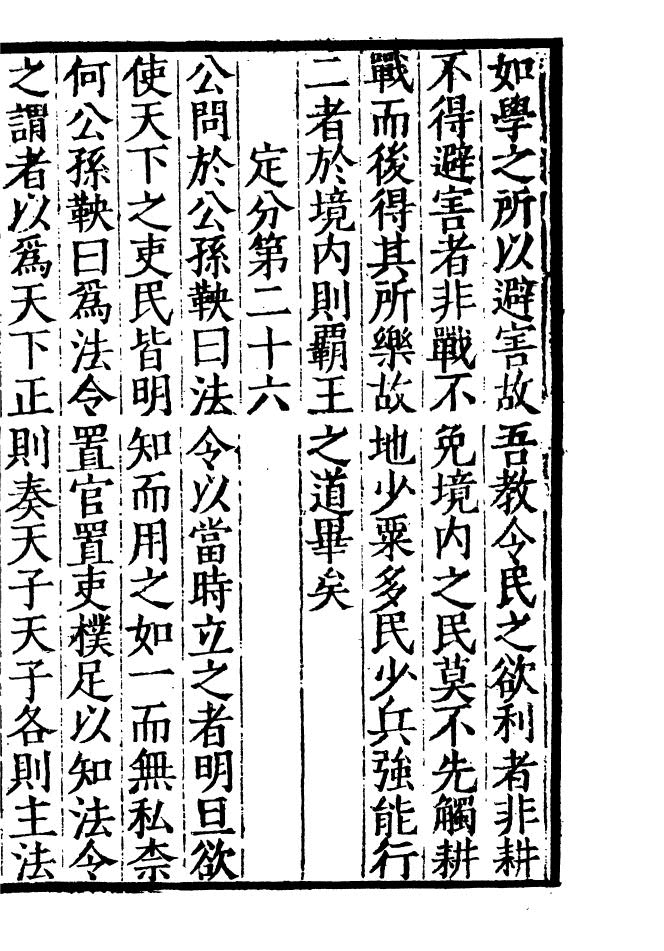 如學之所以避害故吾教令民之欲利者非耕
不得避害者非戰不免境內之民莫不先觸耕
戰而後得其所樂故地少粟多民少兵強能行
二者於境內則霸王之道畢矣
定分第二十六
公問於公孫鞅曰法令以當時立之者明旦欲
使天下之吏民皆明知而用之如一而無私柰
何公孫鞅曰爲法令置官置吏樸足以知法令
之謂者以爲天下正則奏天子天子各則主法